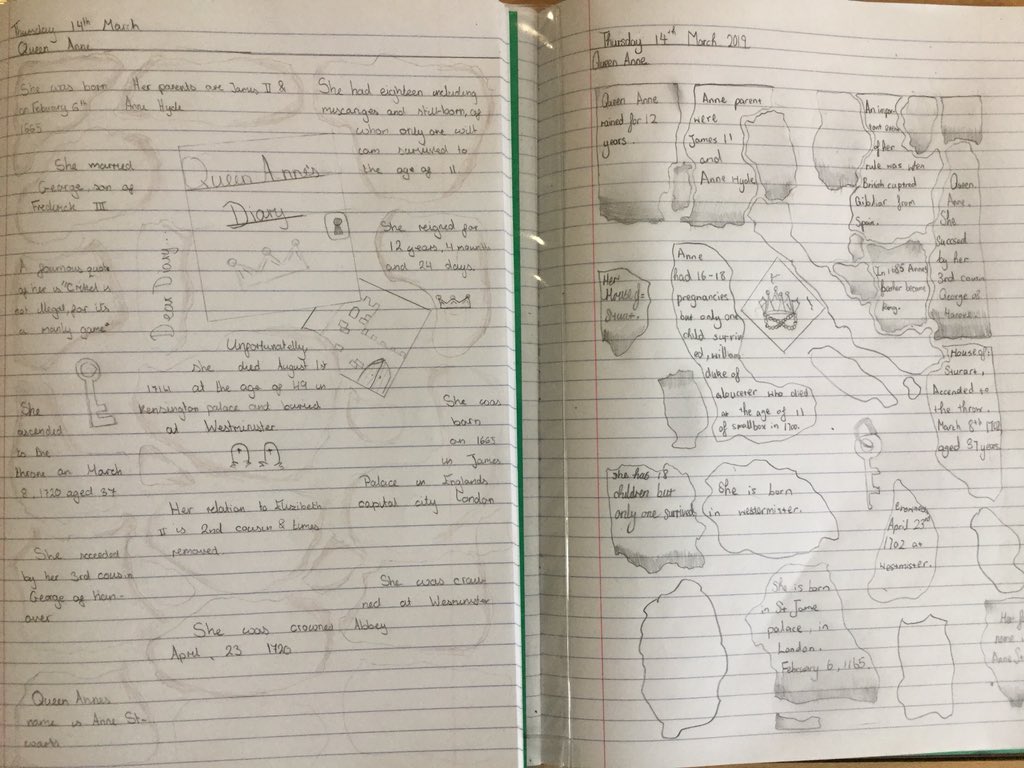 Thursday 14th March
Queen Anne
She was born
on Febuary 6th
1665
Her parents are James II &
Anne Hyde
She had eighteen including
miscarages and still-born, of
whom only one
survived to
the age of 11.
She married
George, son of
Frederick III
Queen Anne's
Diary
Dear Diary...
She reigned for
12 years, 4 mounth
and 24 days.
A founous quote
of her is "Cricket is
not illegal for its
a manly game"
Unfortunatelly
she died August 1st
1714 at the age of 49 in
Kensington palace and burried
at Westminster
She
ascended
to the
throne on March
8, 1720 aged 37
She was
born
on 1665
in James
Palace in Englands
capital city London
Her relation to Elizibeth
II is 2nd cousin 8 times
removed.
She secceded
by her 3rd cousin
George of Hann-
over
She was crow
ned at Westminster
Abbey
She was crowned
April, 23 1720
Queen Annes
name is Anne St-
warts
Thursday 14th March 2019
Queen Anne
Queen Anne
rained for 12
years.
Anne parent
were
James 11
and
Anne Hyde
An impor
tant event
of her
rule was when
British captred
Giblitar from
Spain.
Queen
Anne.
She
Succsed
by her
3rd cousin
George of
Her
House of
Stuart.
Anne
had 16-18
pregnancies
but only one
child surviv
ed, william
duke of
gloucester who died
at the age of 11
of smallbox in 1700.
In 1685 Annes
became
king.
House of:
Sturart,
Accended to
the thron.
March 8th 1702
aged 37 years.
She has 18
children but
only one survived
She is born
in westermister.
April 23rd
1702 at
Westmister.
She is born
in St Jame
palace, in
London.
February 6, 1165.
Her
name
Anne St